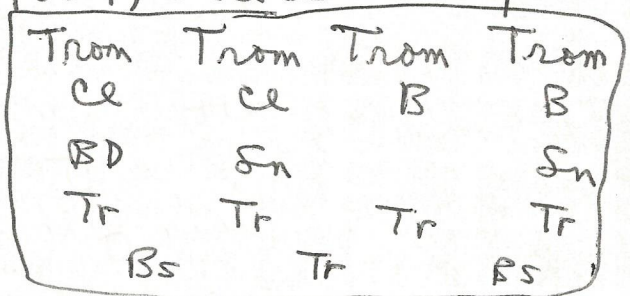 Trom Trom Trom Trom
Cl Cl B B
BD Sn Sn
Tr Tr Tr Tr
Bs Tr Bs